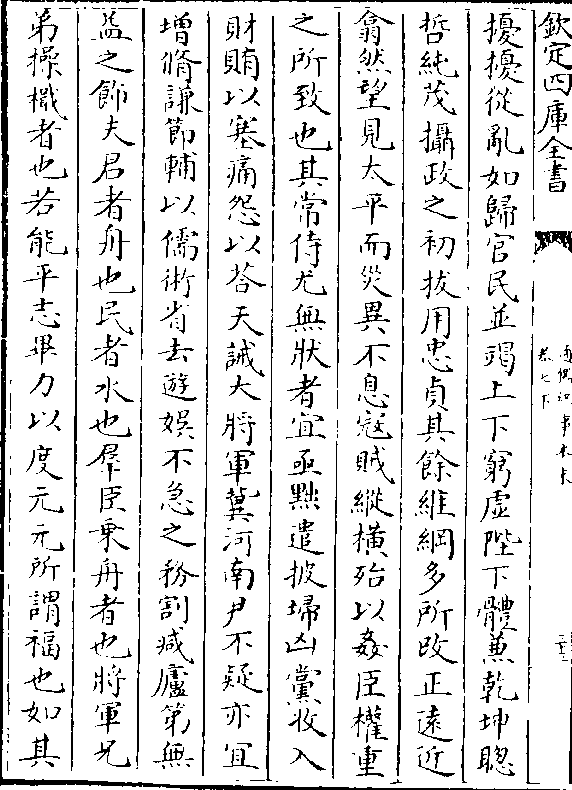 欽定四庫全書
擾擾從亂如歸官民並竭上下窮虛陛下體兼乾坤聰
哲純茂攝政之初拔用忠貞其餘維綱多所改正遠近
翕然望見太平而災異不息寇賊縱橫殆以姦臣權重
之所致也其常侍尤無狀者宜亟黜遣披埽凶黨收入
財賄以塞痛怨以荅天誡大將軍冀河南尹不疑亦宜
增脩謙節輔以儒術省去遊娛不急之務割減廬第無
益之飾夫君者舟也民者水也羣臣乗舟者也將軍兄
弟操檝者也若能平志畢力以度元元所謂福也如其